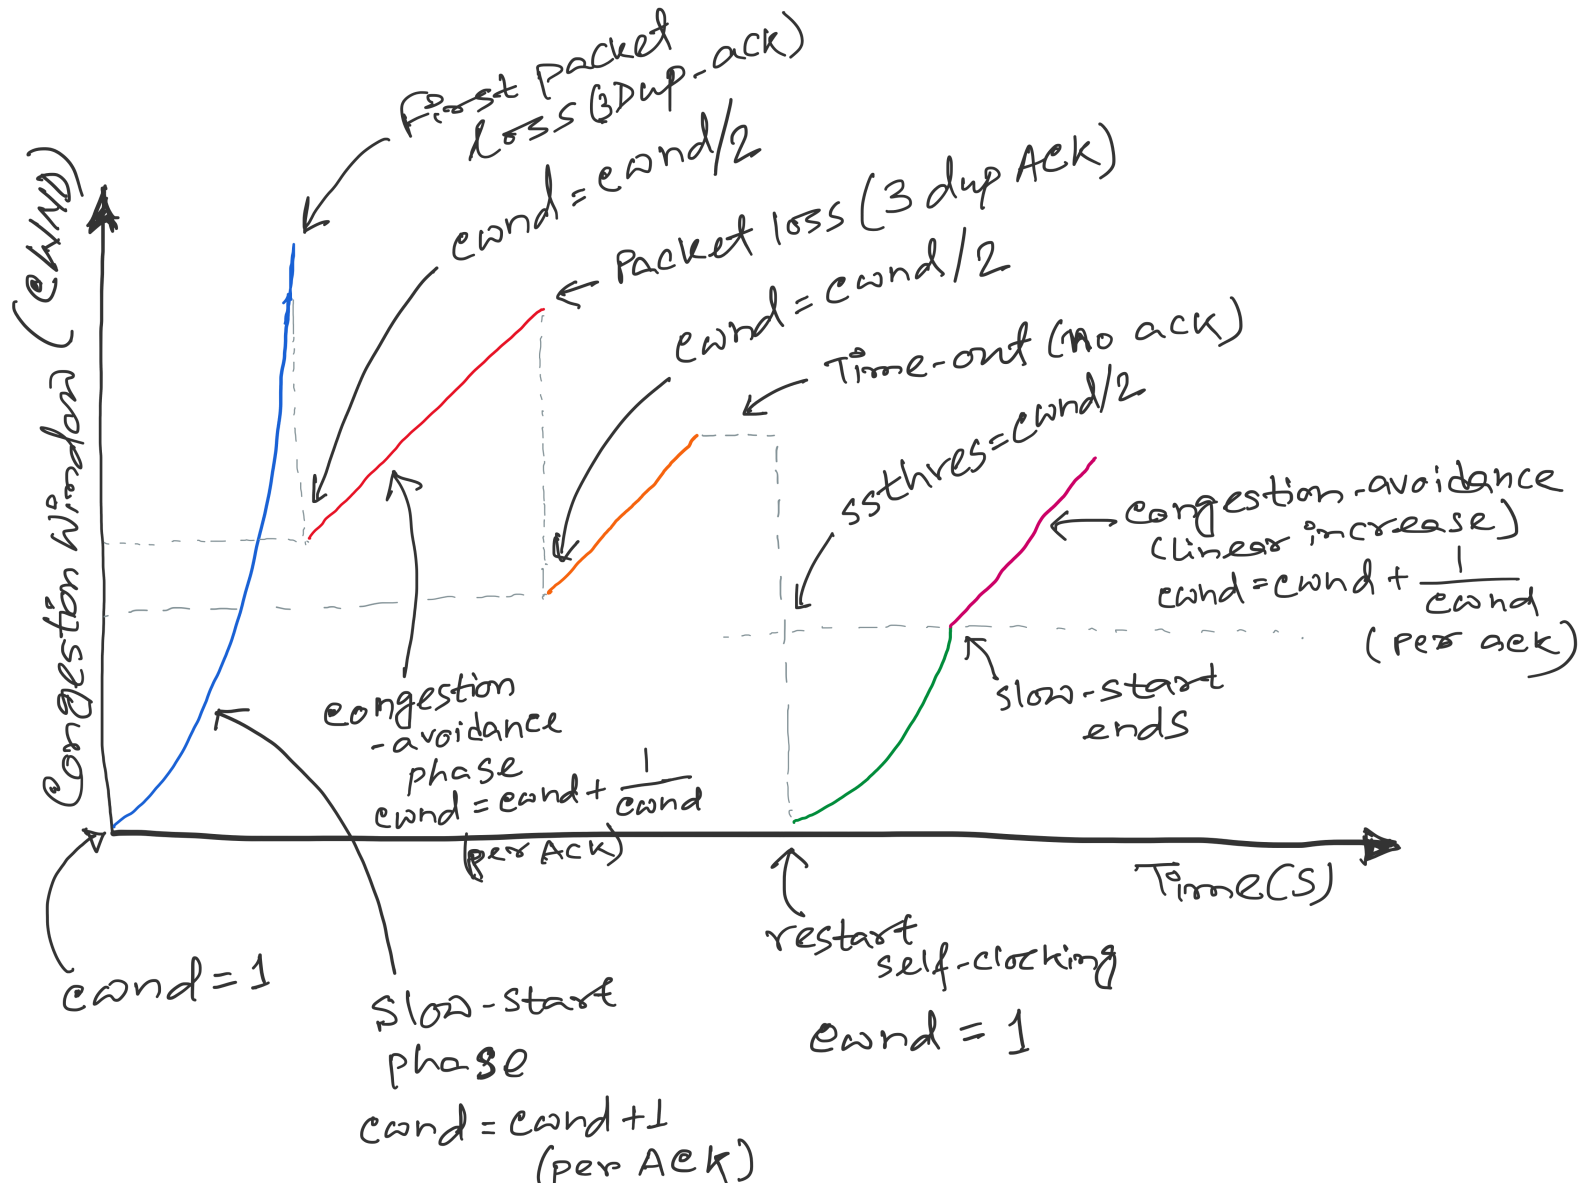 First packet
loss (3Dup-ack)
cwnd = cwnd/2
Packet loss (3 dup ACK)
cwnd = cwnd/2
Time-out (no ack)
ssthres = cwnd/2
Congestion Window (CWND)
congestion-avoidance
(linear increase)
cwnd = cwnd + 1/cwnd
(per ack)
slow-start
ends
congestion
-avoidance
phase
cwnd = cwnd + 1/cwnd
(per ACK)
Time(s)
restart
self-clocking
cwnd = 1
cwnd = 1
Slow-start
phase
cwnd = cwnd +1
(per ACK)